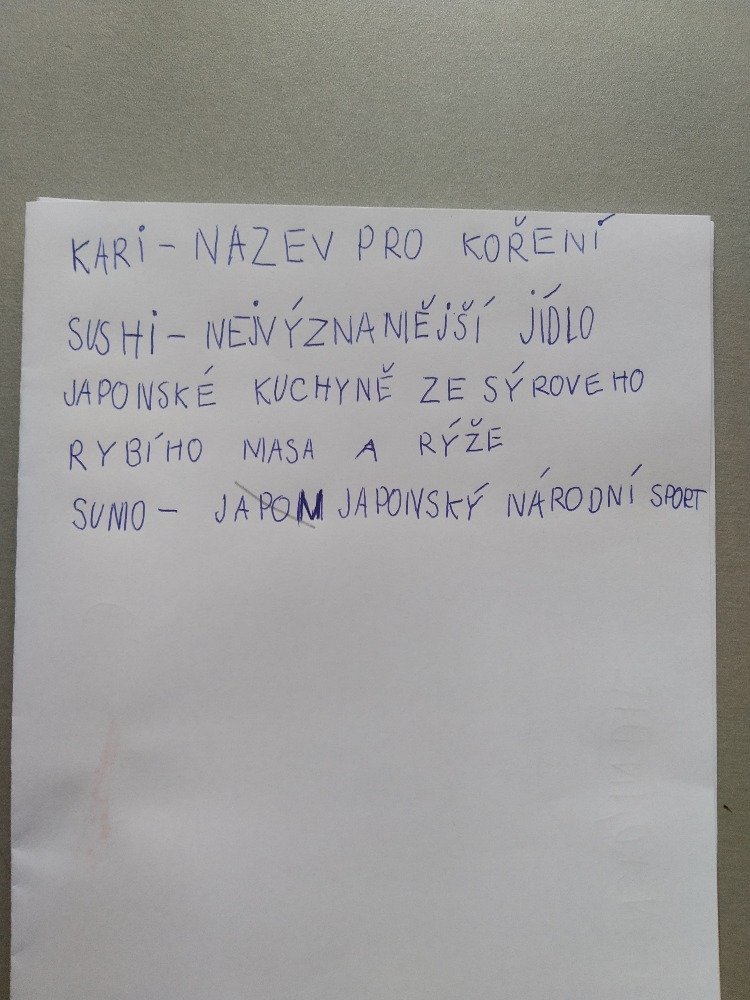 KARI - NAZEV PRO KOŘENÍ
SUSHI - NEJVÝZNANĚJŠÍ JÍDLO
JAPONSKÉ KUCHYNĚ ZE SÝROVEHO
RYBÍHO MASA A RÝŽE
SUMO - JAPON JAPONSKÝ NÁRODNÍ SPORT